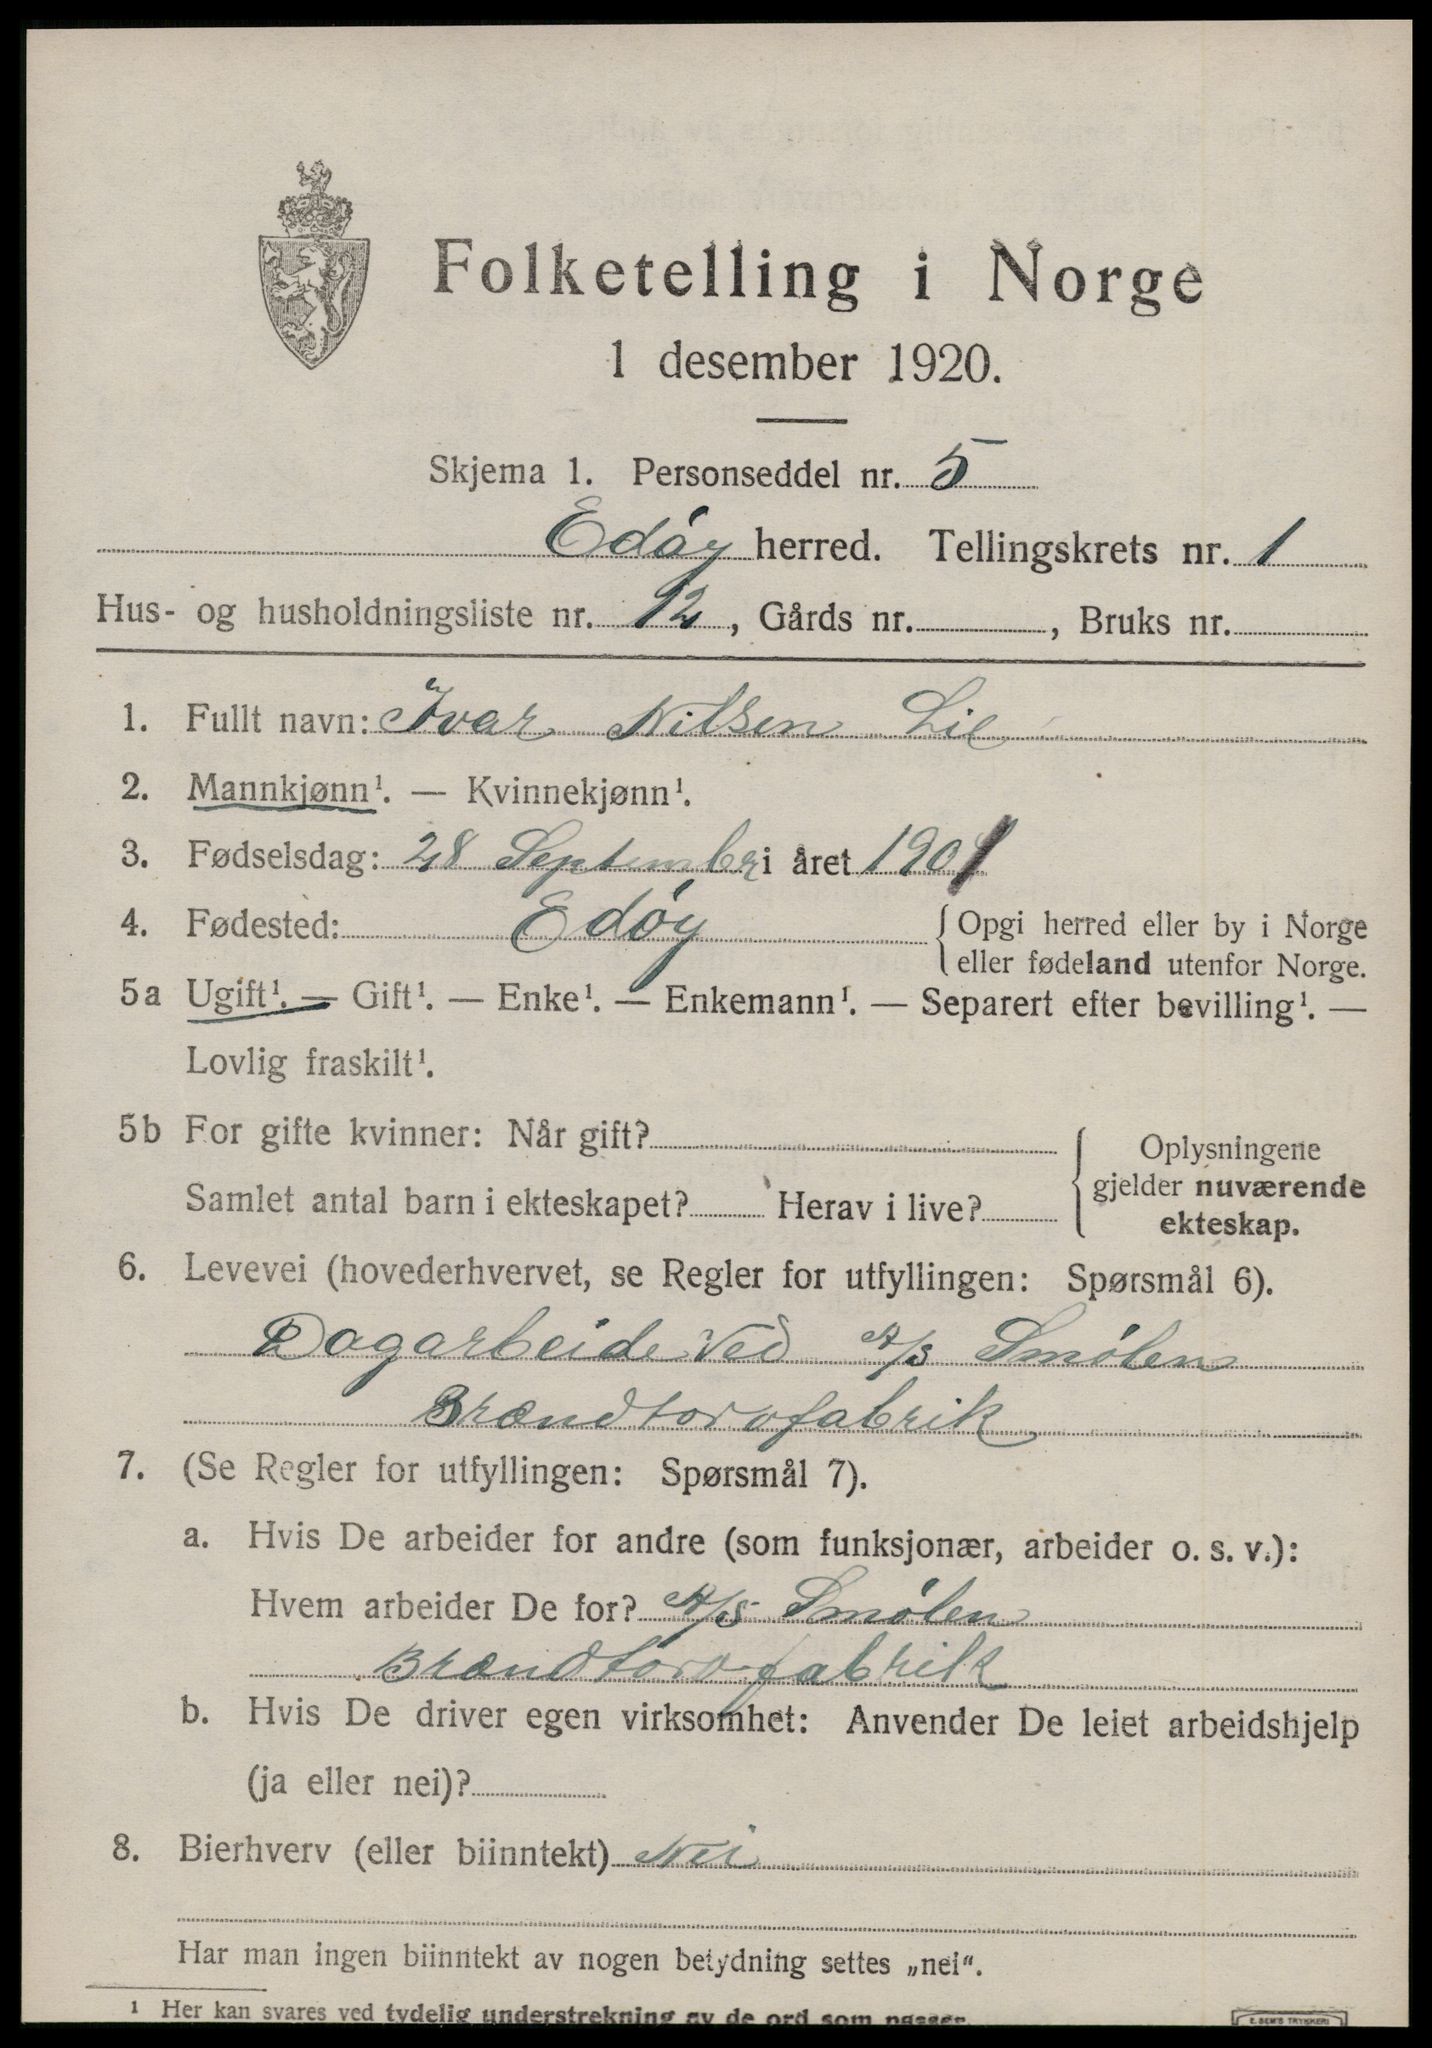 Folketelling i Norge
1 desember 1920.
Skjema 1. Personseddel nr. 5
Edøy herred. Tellingskrets nr. 1
Hus- og husholdningsliste nr. 12, Gårds nr. , Bruks nr.
1. Fullt navn: Ivar Nilsen Lie
2. Mannkjønn¹. — Kvinnekjønn¹.
3. Fødselsdag: 28 September i året 1901
4. Fødested: Edøy { Opgi herred eller by i Norge
eller fødeland utenfor Norge.
5a Ugift¹. — Gift¹. — Enke¹. — Enkemann¹. — Separert efter bevilling¹. —
Lovlig fraskilt¹.
5b For gifte kvinner: Når gift? { Oplysningene
gjelder nuværende
ekteskap.
Samlet antal barn i ekteskapet? Herav i live?
6. Levevei (hovederhvervet, se Regler for utfyllingen: Spørsmål 6).
Dagarbeide ved A/S Smølen
Brændtorvfabrik
7. (Se Regler for utfyllingen: Spørsmål 7).
a. Hvis De arbeider for andre (som funksjonær, arbeider o. s. v.):
Hvem arbeider De for? A/S Smølen
Brændtorvfabrik
b. Hvis De driver egen virksomhet: Anvender De leiet arbeidshjelp
(ja eller nei)?
8. Bierhverv (eller biinntekt) Nei
Har man ingen biinntekt av nogen betydning settes „nei“.
1 Her kan svares ved tydelig understrekning av de ord som passer.
E. SEM'S TRYKKERI